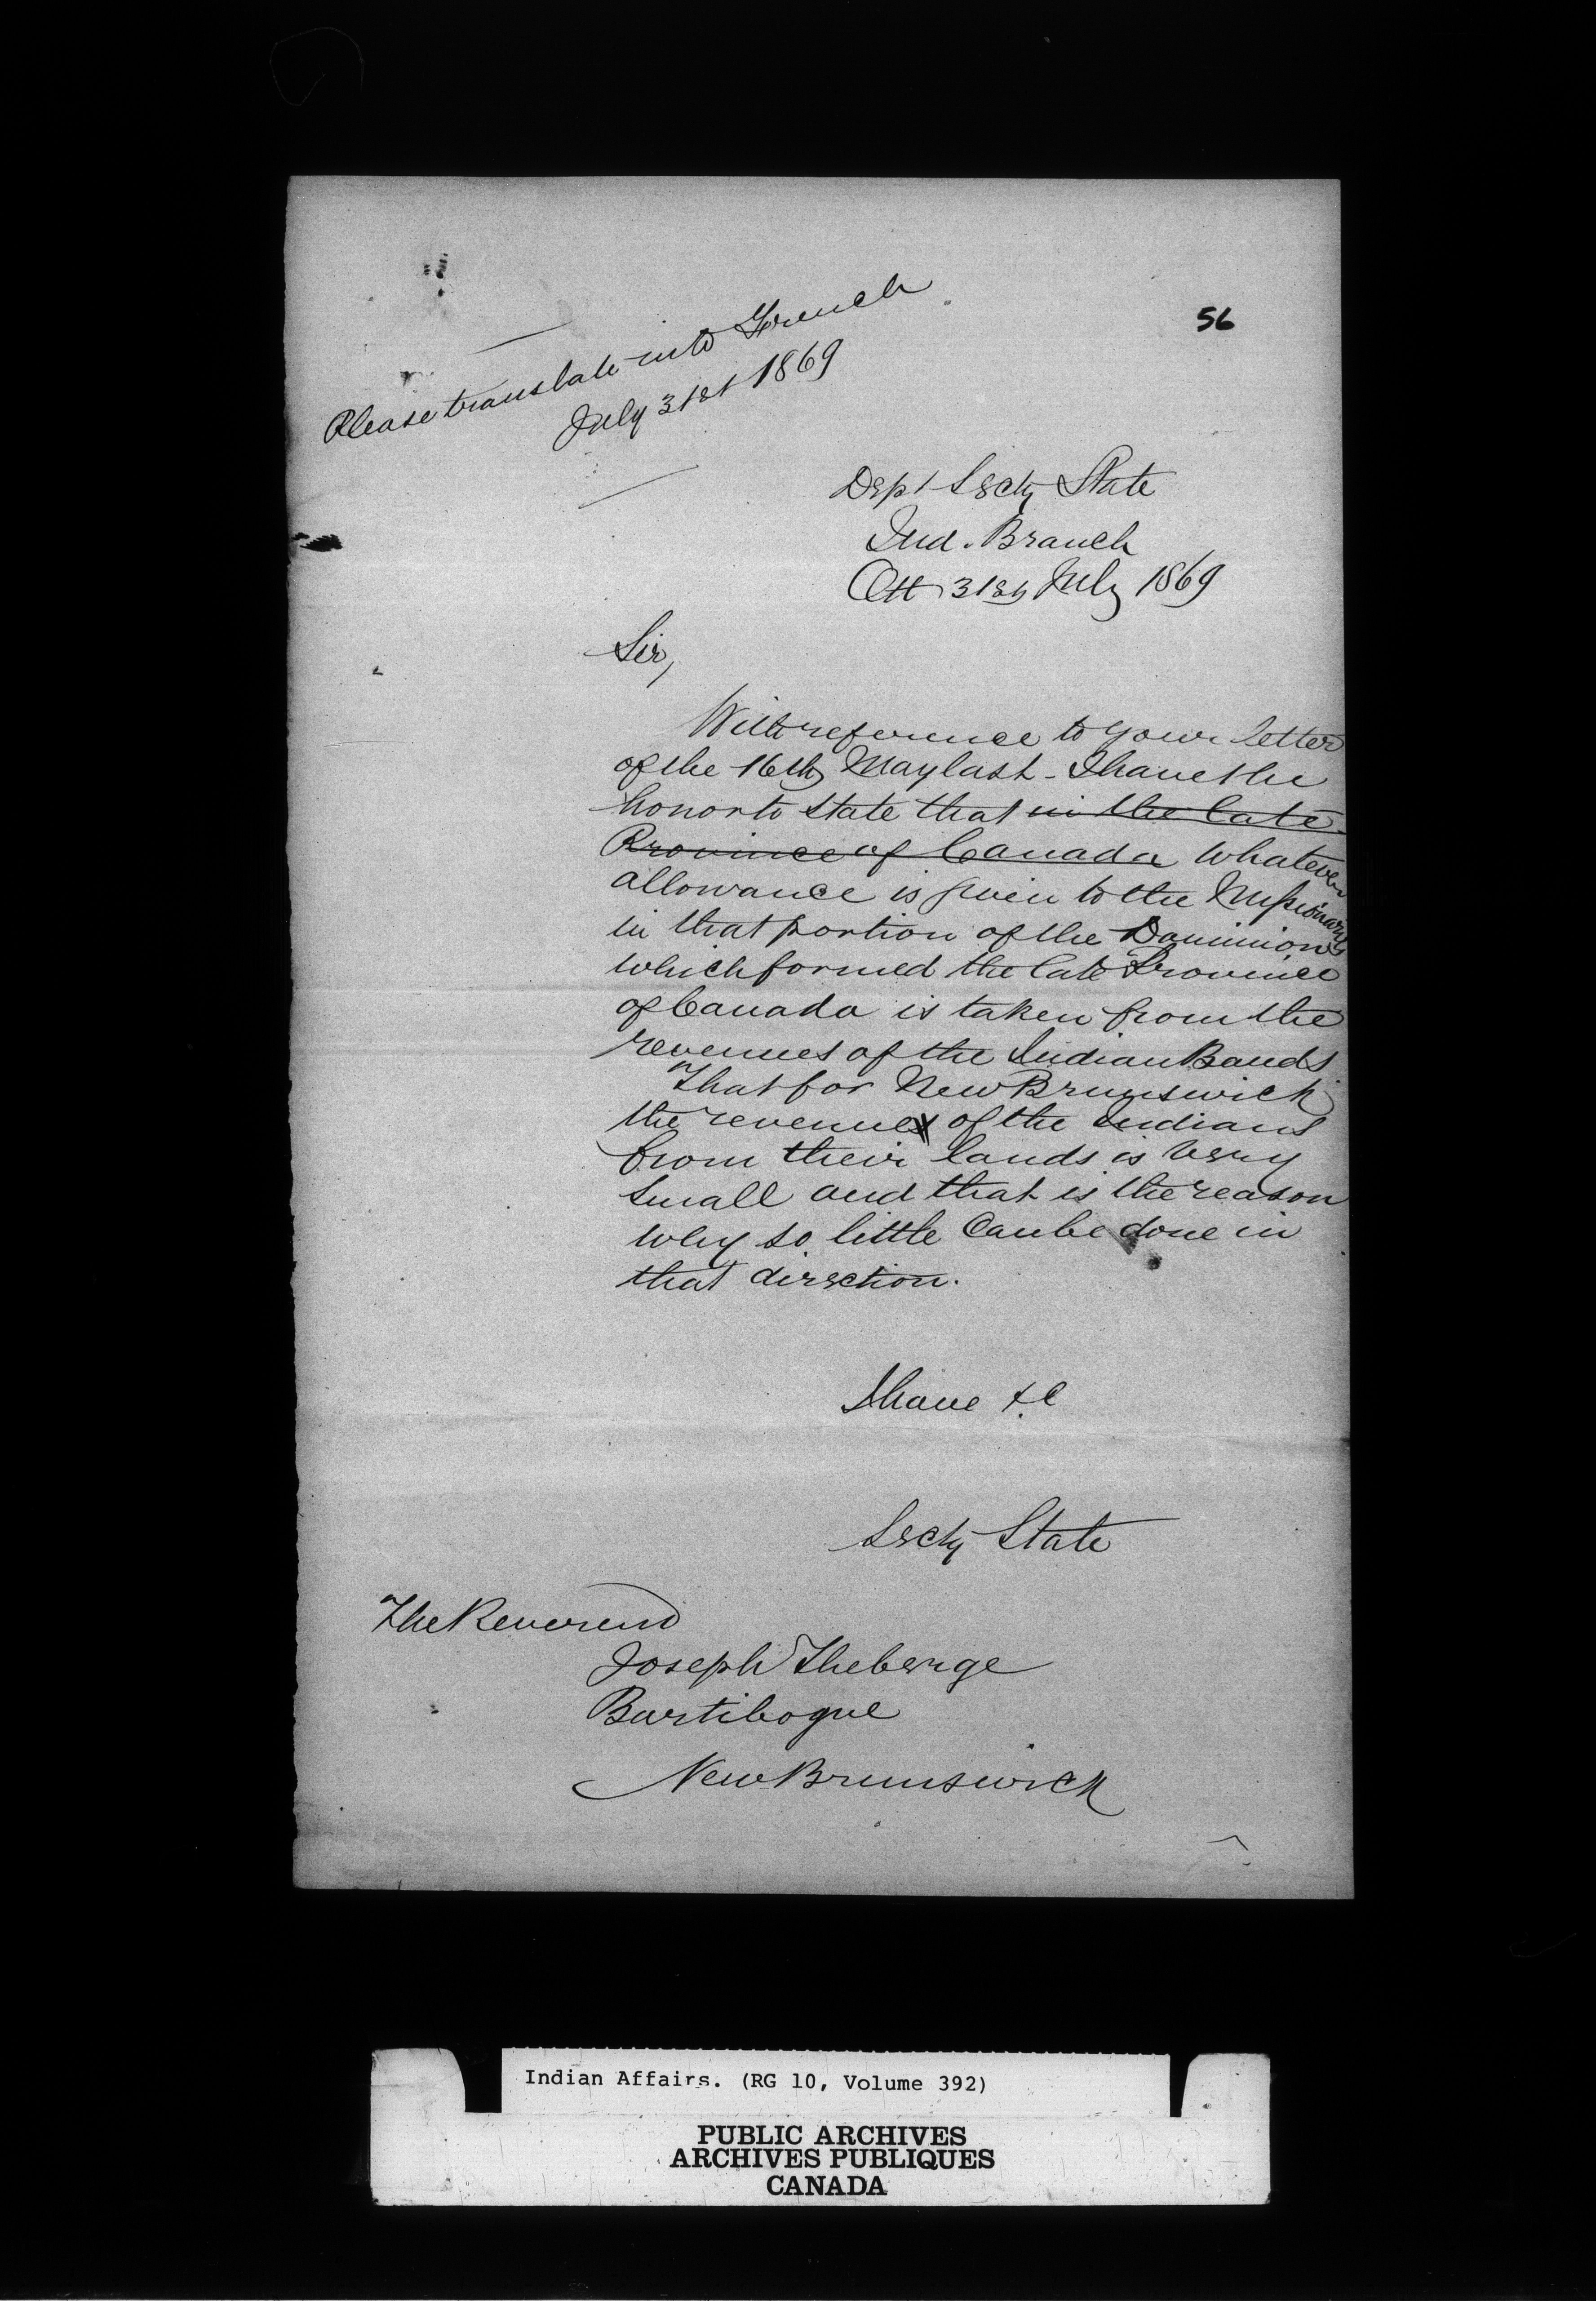 56
Please translate into French
July 31st 1869
Dept Secty State
Ind. Branch
Ott 31st July 1869
Sir,
With reference to your letter
of the 16th May last - I have the
honor to state that in the late
Province of Canada whatever
allowance is given to the Missionary
in that portion of the Dominion
which formed the late Province
of Canada is taken from the
revenues of the Indian Bands
That for New Brunswick
the revenues of the Indians
from their lands is very
small and that is the reason
why so little can be done in
that direction.
I have &c
Secty State
The Reverend
Joseph Theberge
Bartibogue
New Brunswick
Indian Affairs. (RG 10, Volume 392)
PUBLIC ARCHIVES
ARCHIVES PUBLIQUES
CANADA